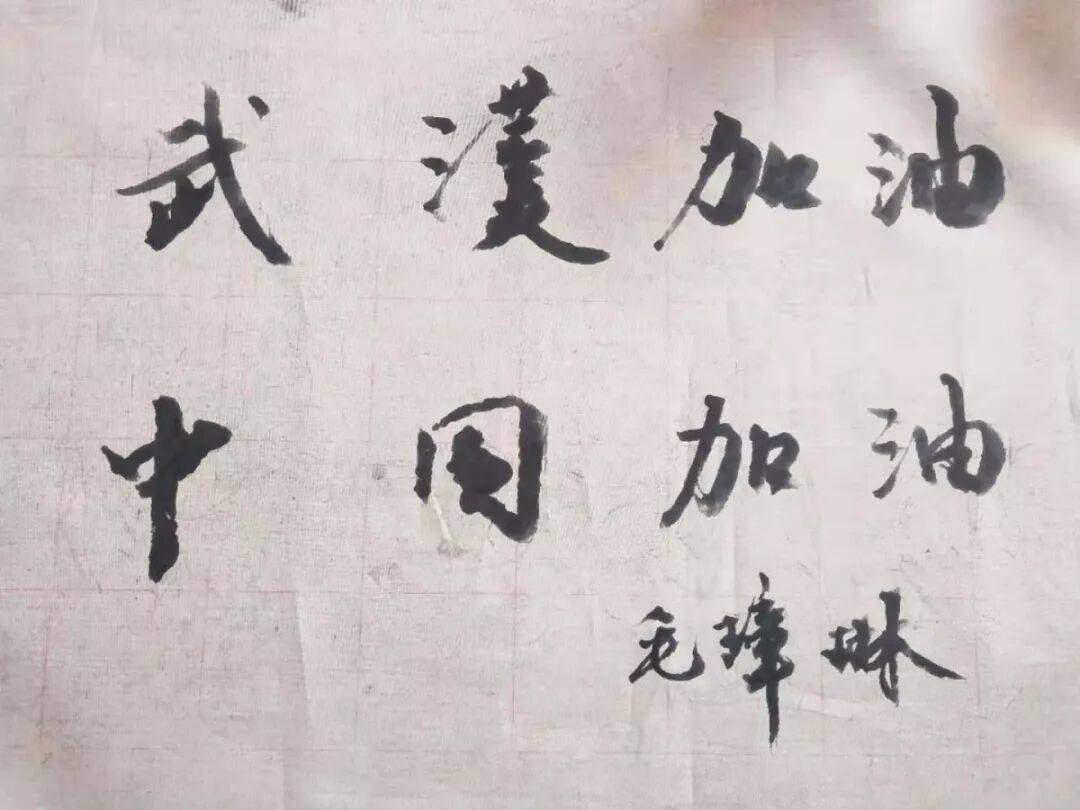 武漢加油
中国加油
毛璋琳